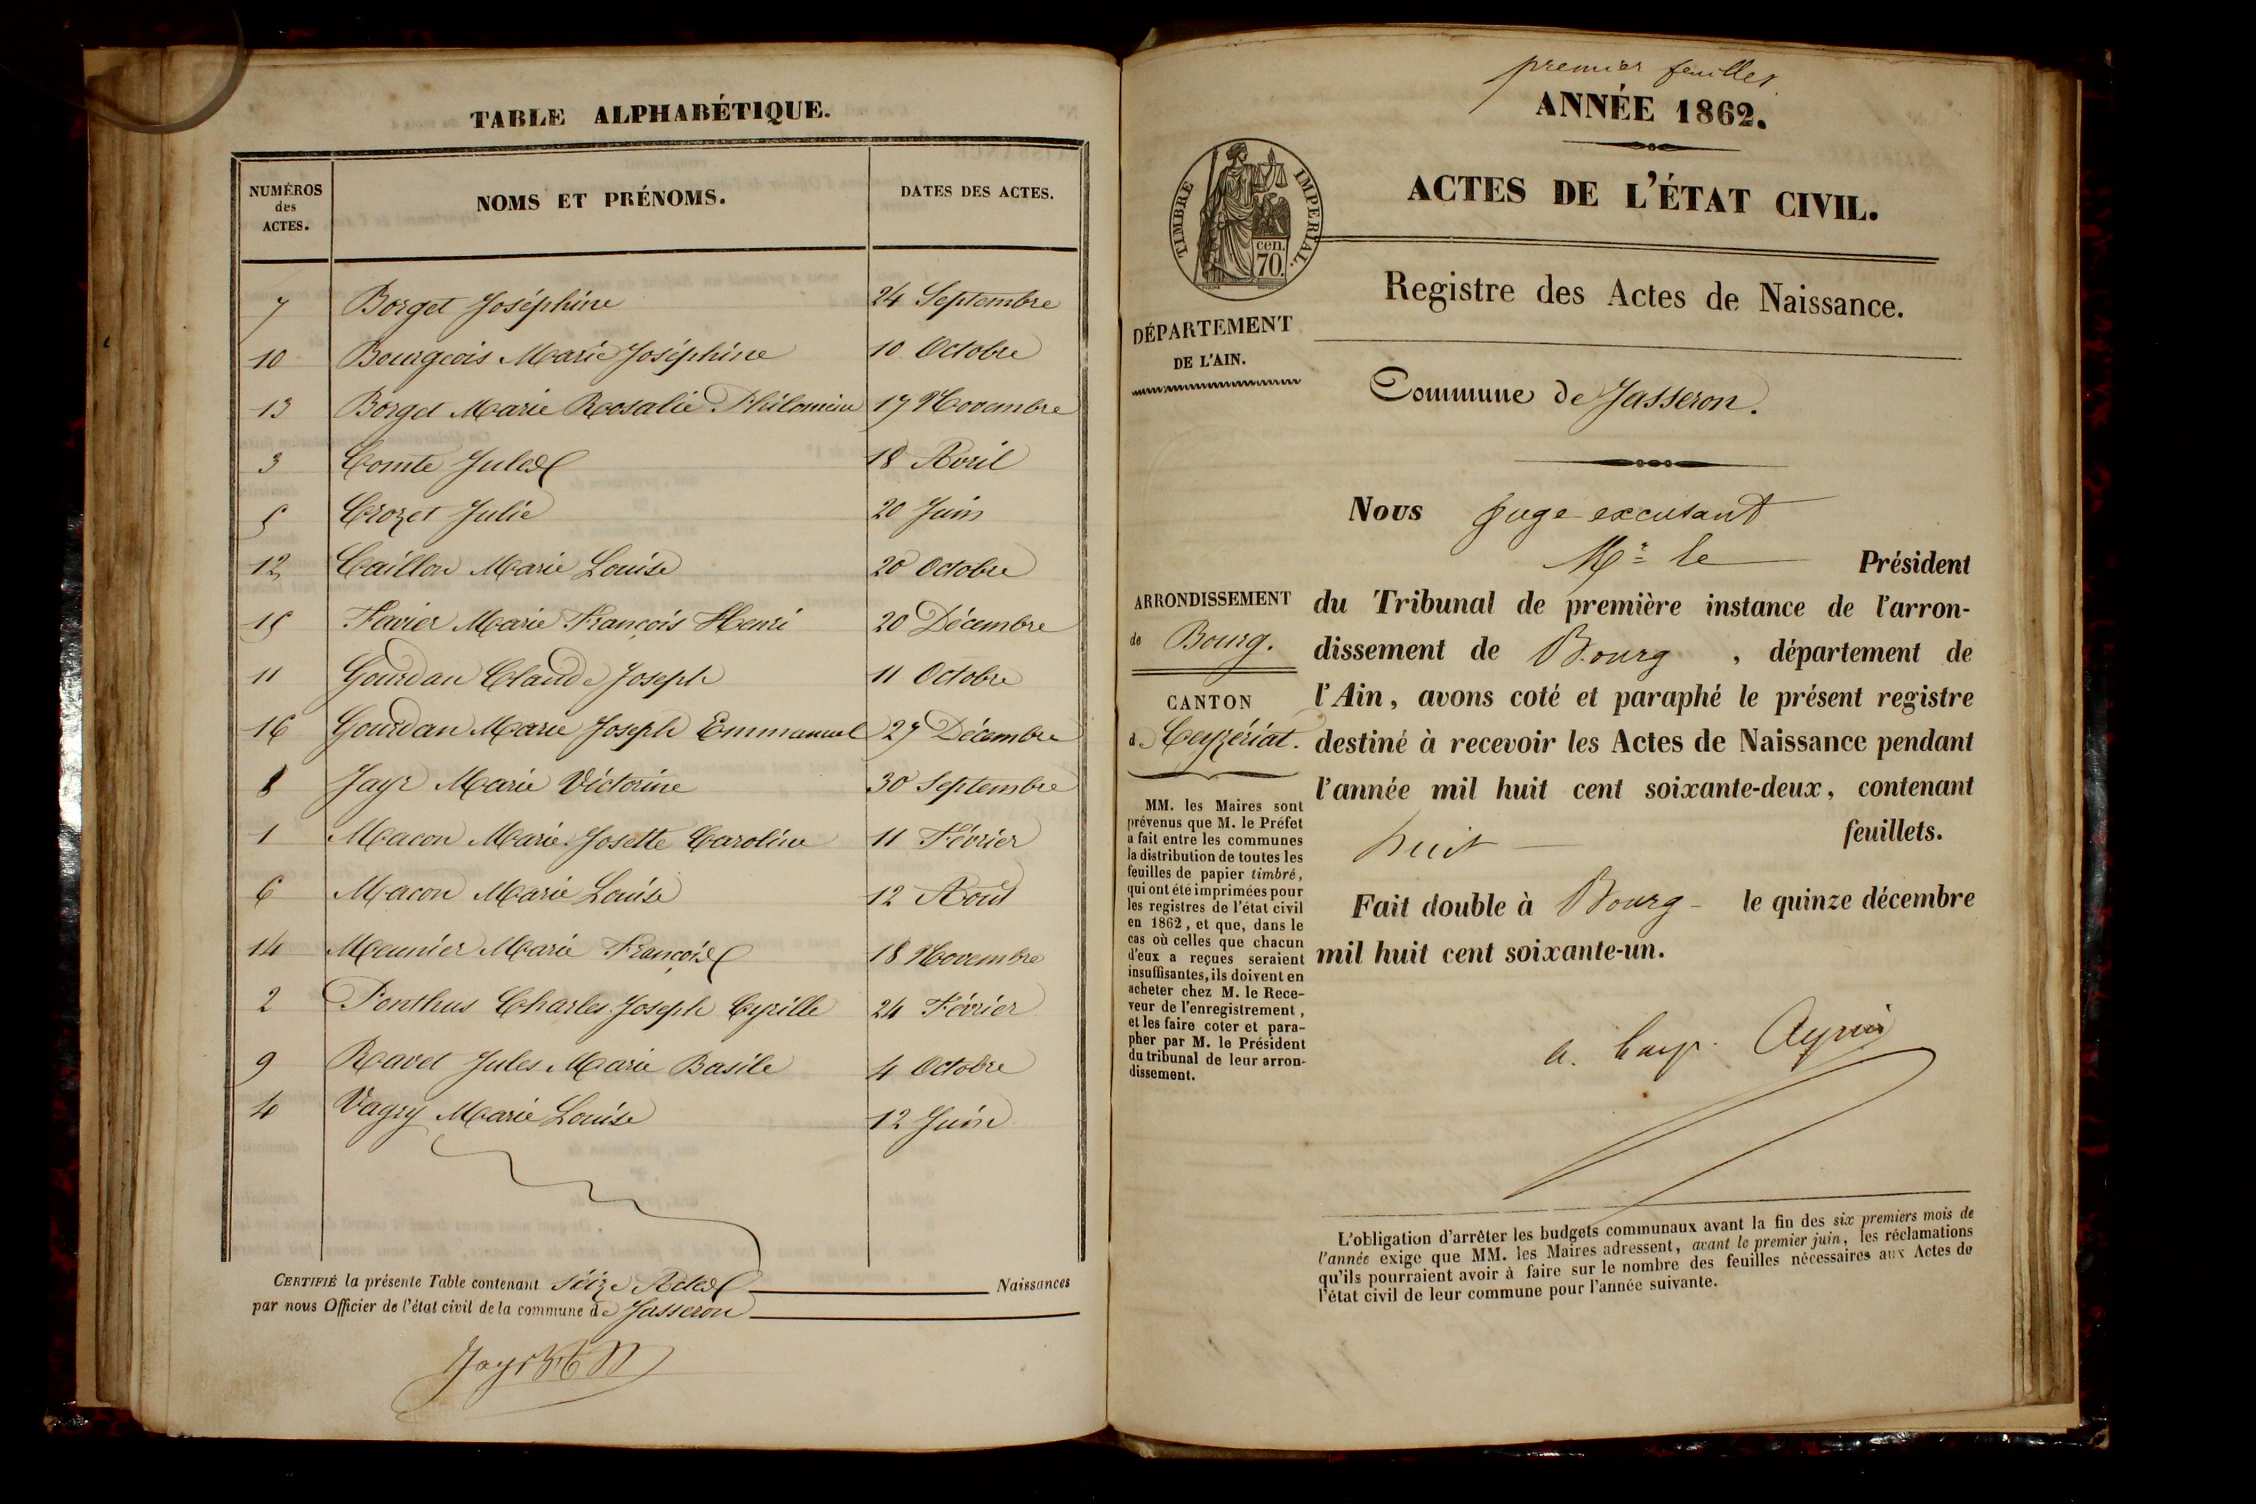 TABLE ALPHABÉTIQUE.
NUMÉROS des ACTES. NOMS ET PRÉNOMS. DATES DES ACTES.
7 Borget Joséphine 24 Septembre
10 Bourgeois Marie Joséphine 10 Octobre
13 Borget Marie Rosalie Philomène 17 Novembre
3 Comte Jules 18 Avril
5 Crozet Julie 20 Juin
12 Caillon Marie Louise 20 Octobre
15 Favier Marie François Henri 20 Décembre
11 Gourdan Claude Joseph 11 Octobre
16 Gourdan Marie Joseph Emmanuel 27 Décembre
8 Jayr Marie Victorine 30 Septembre
1 Macon Marie Josette Caroline 11 Février
6 Macon Marie Louise 12 Aout
14 Meunier Marie François 18 Novembre
2 Ponthus Charles Joseph Cyrille 24 Février
9 Ravet Jules Marie Basile 4 Octobre
4 Vagry Marie Louise 12 Juin
CERTIFIÉ la présente Table contenant seize Actes Naissances
par nous Officier de l'état civil de la commune de Jasseron
premier feuillet.
ANNÉE 1862.
ACTES DE L'ÉTAT CIVIL.
TIMBRE IMPERIAL.
cen.
70.
Registre des Actes de Naissance.
DÉPARTEMENT
DE L'AIN.
Commune de Jasseron.
Nous juge excusant
Mr le Président
du Tribunal de première instance de l'arron-
dissement de Bourg, département de
l'Ain, avons coté et paraphé le présent registre
destiné à recevoir les Actes de Naissance pendant
l'année mil huit cent soixante-deux, contenant
huit feuillets.
Fait double à Bourg le quinze décembre
mil huit cent soixante-un.
ARRONDISSEMENT
de Bourg.
CANTON
de Ceyzériat.
MM. les Maires sont
prévenus que M. le Préfet
a fait entre les communes
la distribution de toutes les
feuilles de papier timbré,
qui ont été imprimées pour
les registres de l'état civil
en 1862, et que, dans le
cas où celles que chacun
d'eux a reçues seraient
insuffisantes, ils doivent en
acheter chez M. le Rece-
veur de l'enregistrement,
et les faire coter et para-
pher par M. le Président
du tribunal de leur arron-
dissement.
L'obligation d'arrêter les budgets communaux avant la fin des six premiers mois de
l'année exige que MM. les Maires adressent, avant le premier juin, les réclamations
qu'ils pourraient avoir à faire sur le nombre des feuilles nécessaires aux Actes de
l'état civil de leur commune pour l'année suivante.